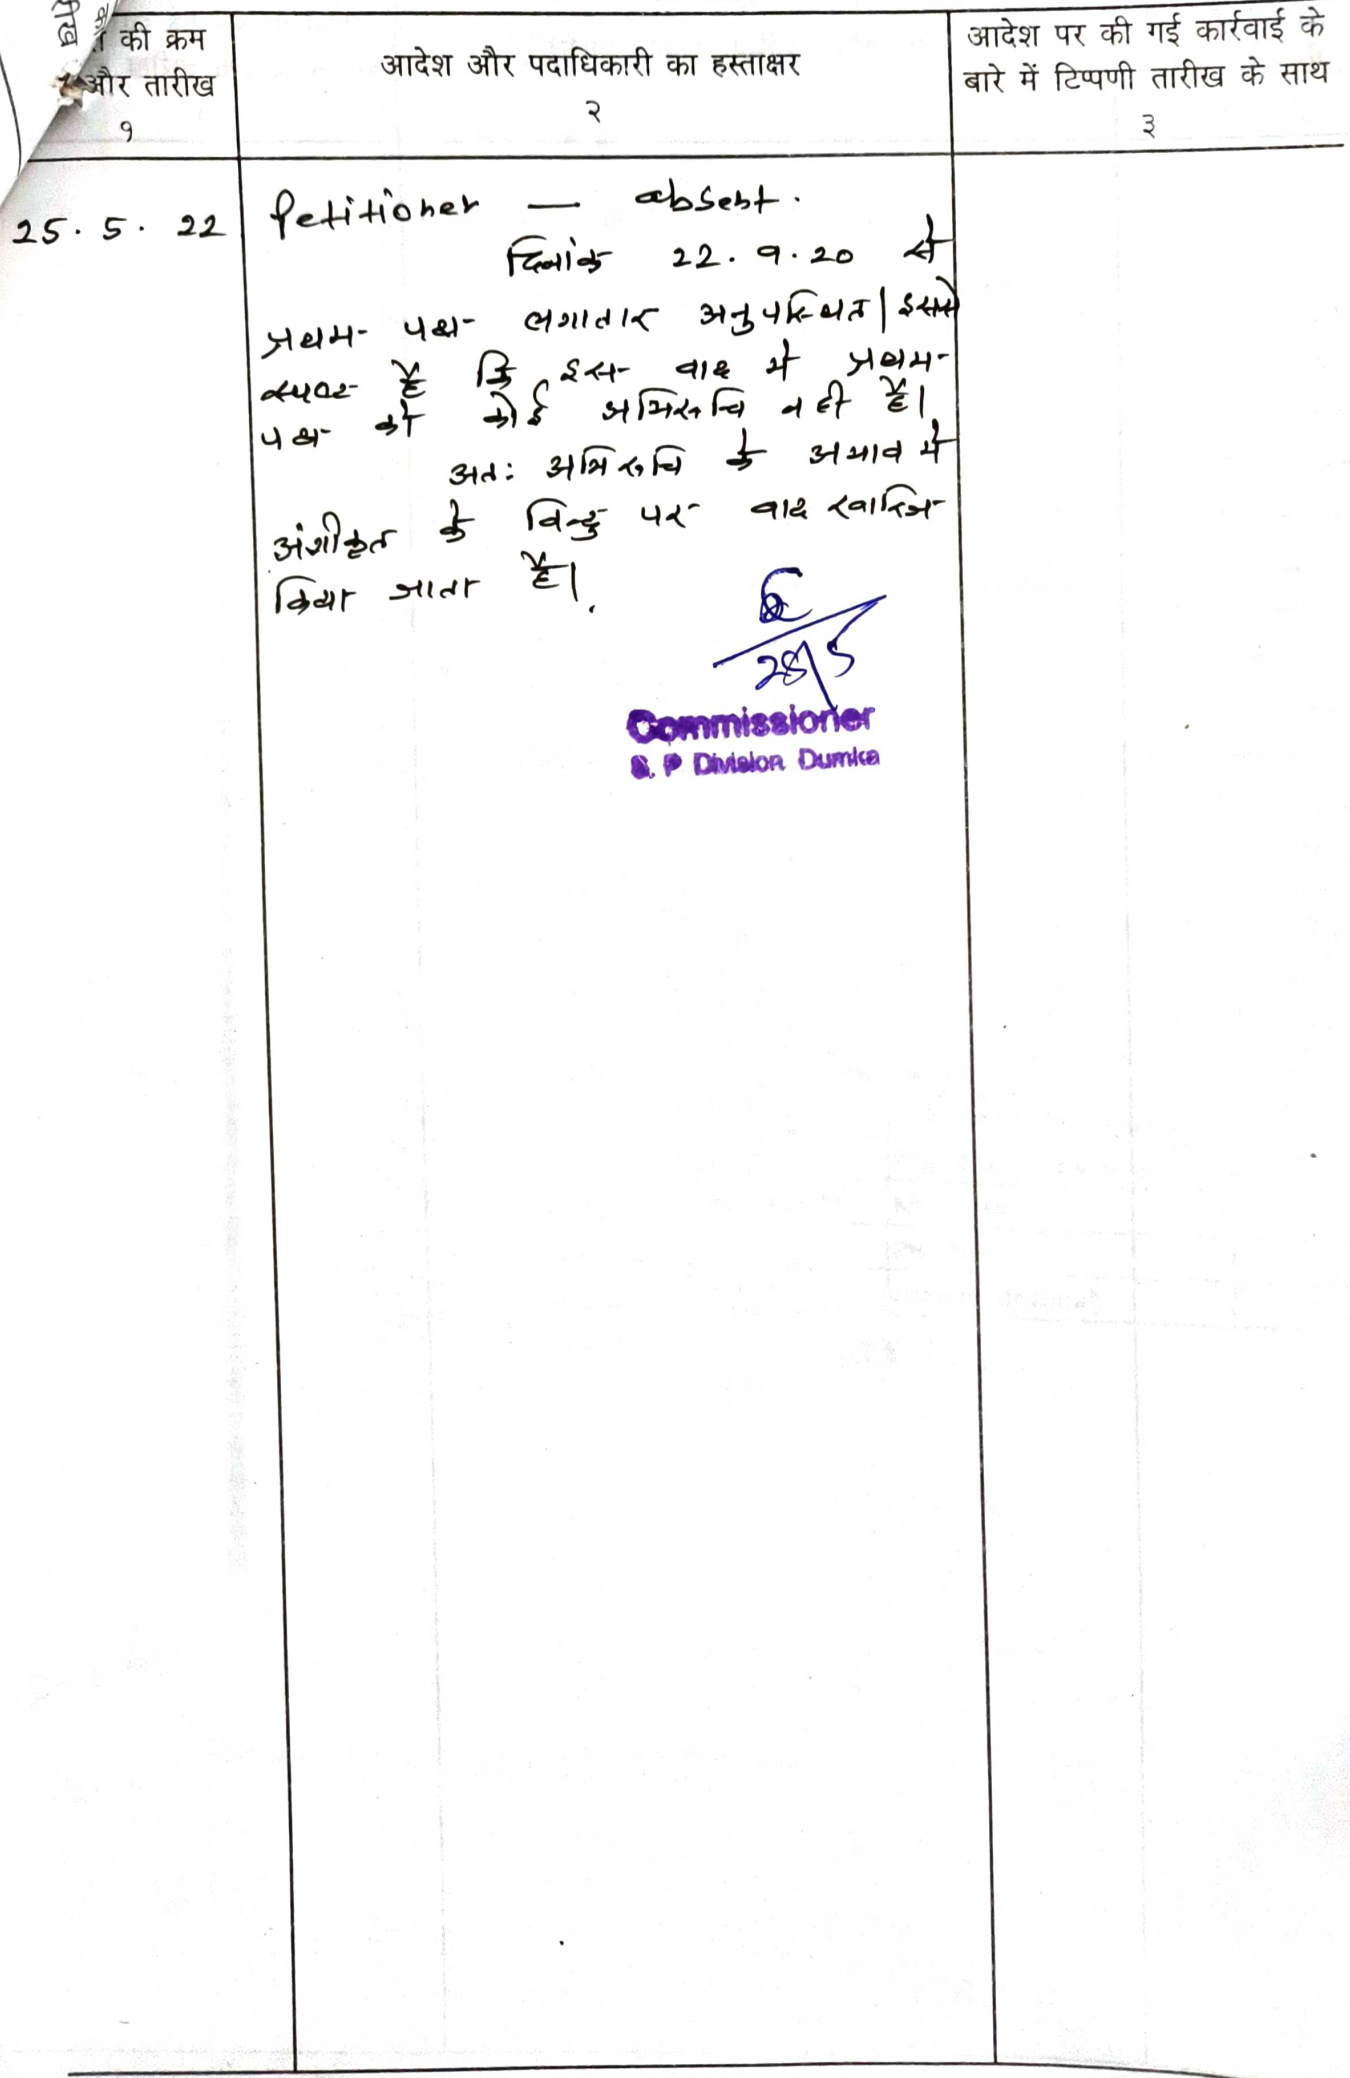 की क्रम
और तारीख
१
आदेश और पदाधिकारी का हस्ताक्षर
२
आदेश पर की गई कार्रवाई के
बारे में टिप्पणी तारीख के साथ
३
25. 5. 22
Petitioner — absent.
दिनांक 22.9.20 से
प्रथम पक्ष लगातार अनुपस्थित| इससे
स्पष्ट है कि इस वाद में प्रथम
पक्ष को कोई अभिरूचि नही है।
अत: अभिरूचि के अभाव में
अंगीकृत के बिन्दु पर वाद खारिज
किया जाता है।
5
Commissioner
S. P Division Dumka